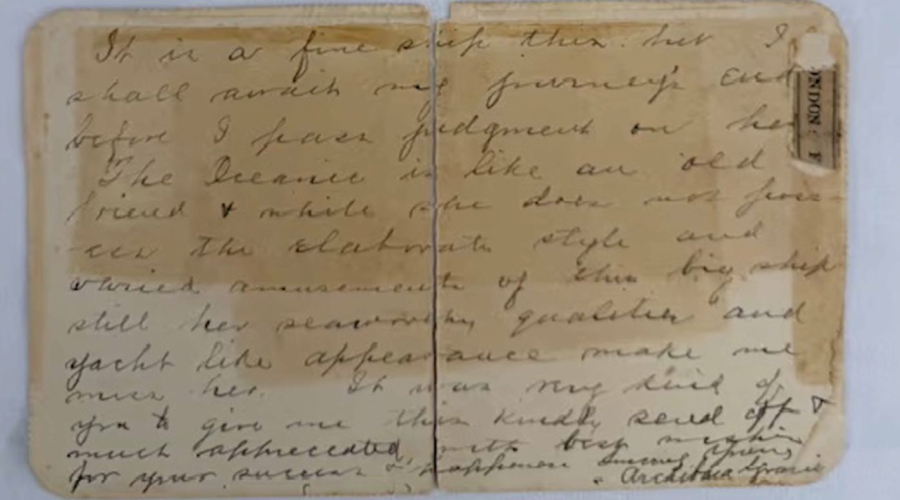 It is a fine ship this but I
shall await my journey's end
before I pass judgment on her
The Oceanic is like an old
friend & while she does not poss-
ess the elaborate style and
varied amusements of this big ship
still her seaworthy qualities and
yacht like appearance make me
miss her. It was very kind of
you to give me this kindly send off &
much appreciated with best wishes
for your success & happiness Sincerely yours
Archibald Gracie
ONDON